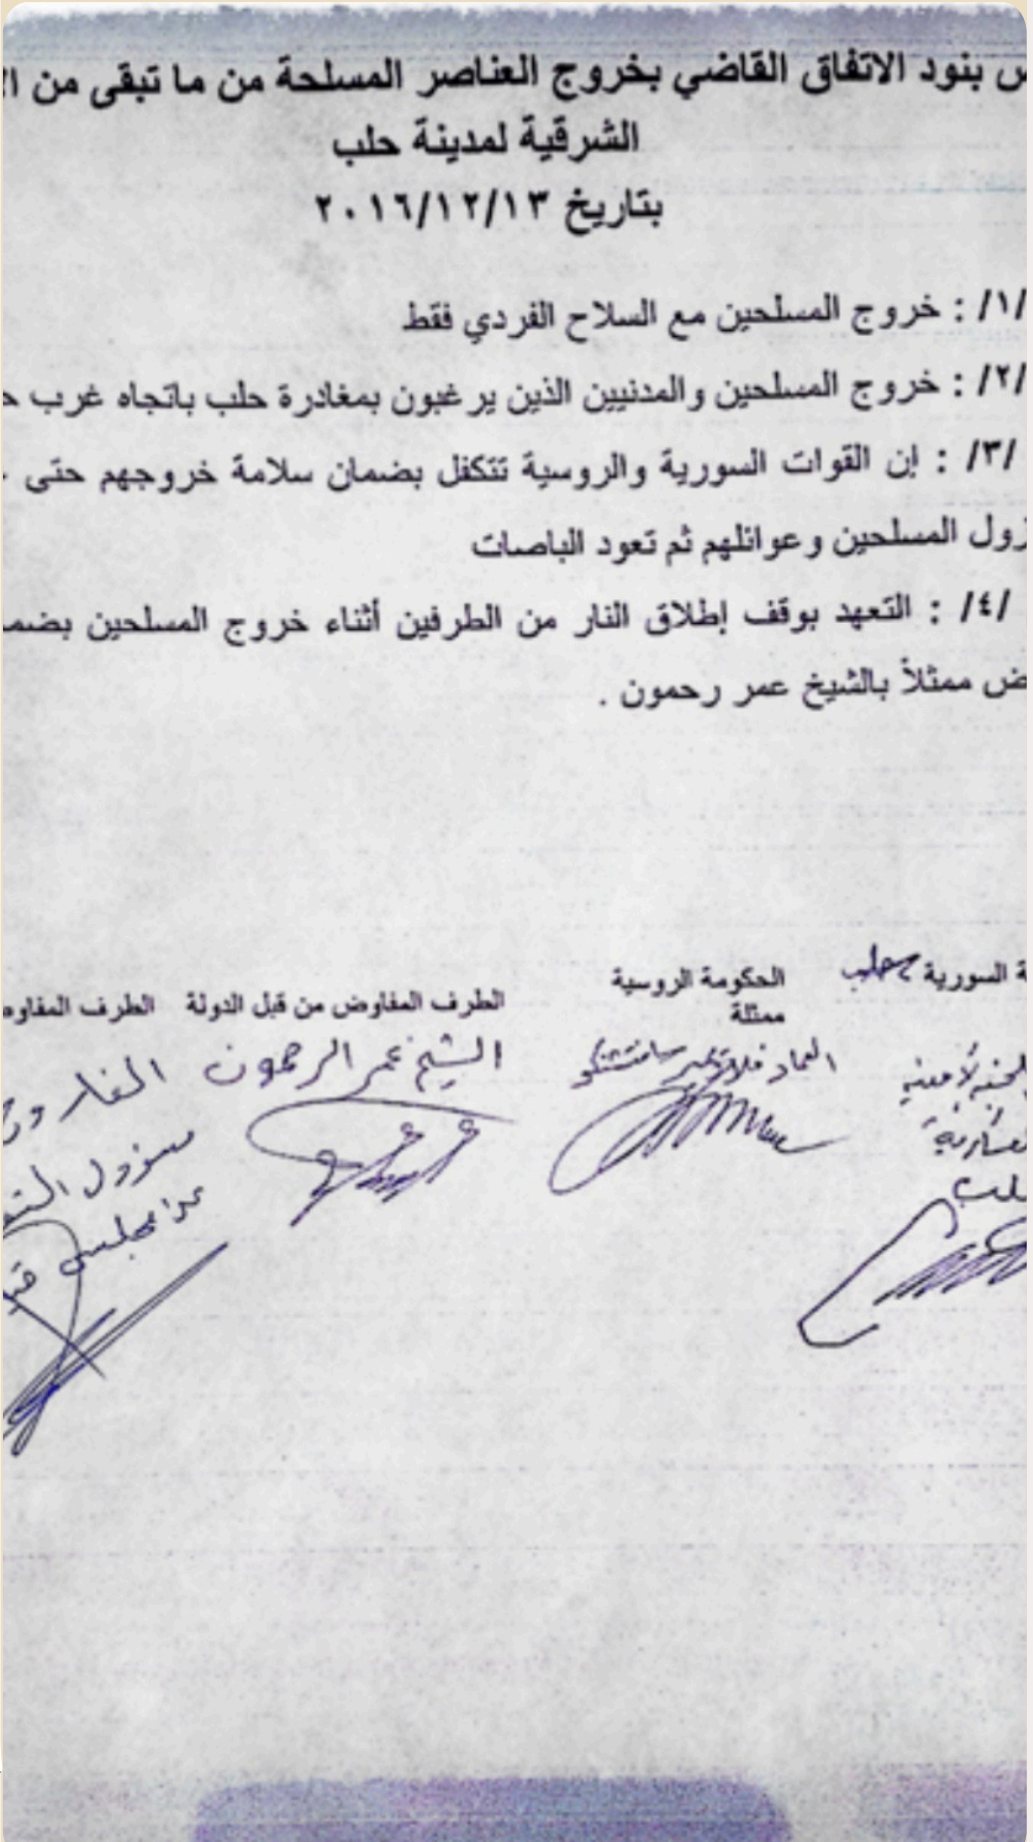 بنود الاتفاق القاضي بخروج العناصر المسلحة من ما تبقى من
الشرقية لمدينة حلب
بتاريخ ٢٠١٦/١٢/١٣
/١/ : خروج المسلحين مع السلاح الفردي فقط
/٢/ : خروج المسلحين والمدنيين الذين يرغبون بمغادرة حلب باتجاه غرب
/٣/ : إن القوات السورية والروسية تتكفل بضمان سلامة خروجهم حتى
المسلحين وعوائلهم ثم تعود الباصات
/٤/ : التعهد بوقف إطلاق النار من الطرفين أثناء خروج المسلحين
ممثلاً بالشيخ عمر رحمون .
السورية
الحكومة الروسية
ممثلة
الطرف المفاوض من قبل الدولة
الطرف
العماد
الشيخ عمر الرحمون